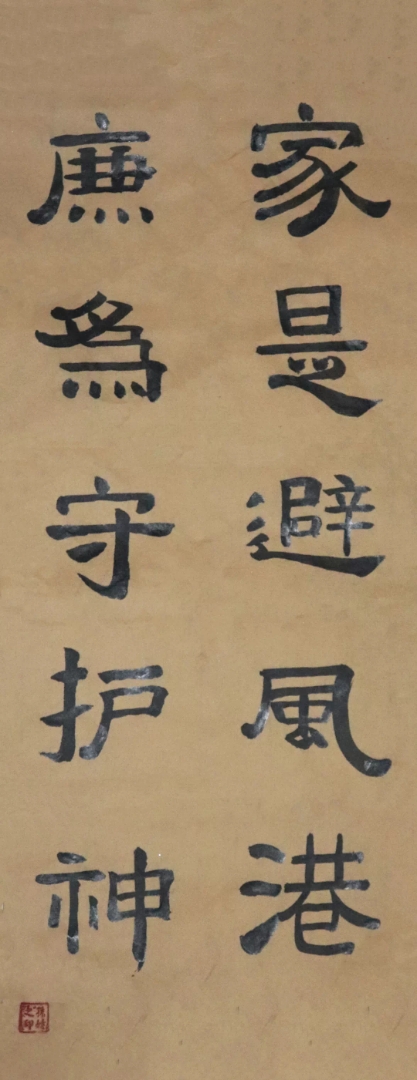 家是避風港
廉爲守护神